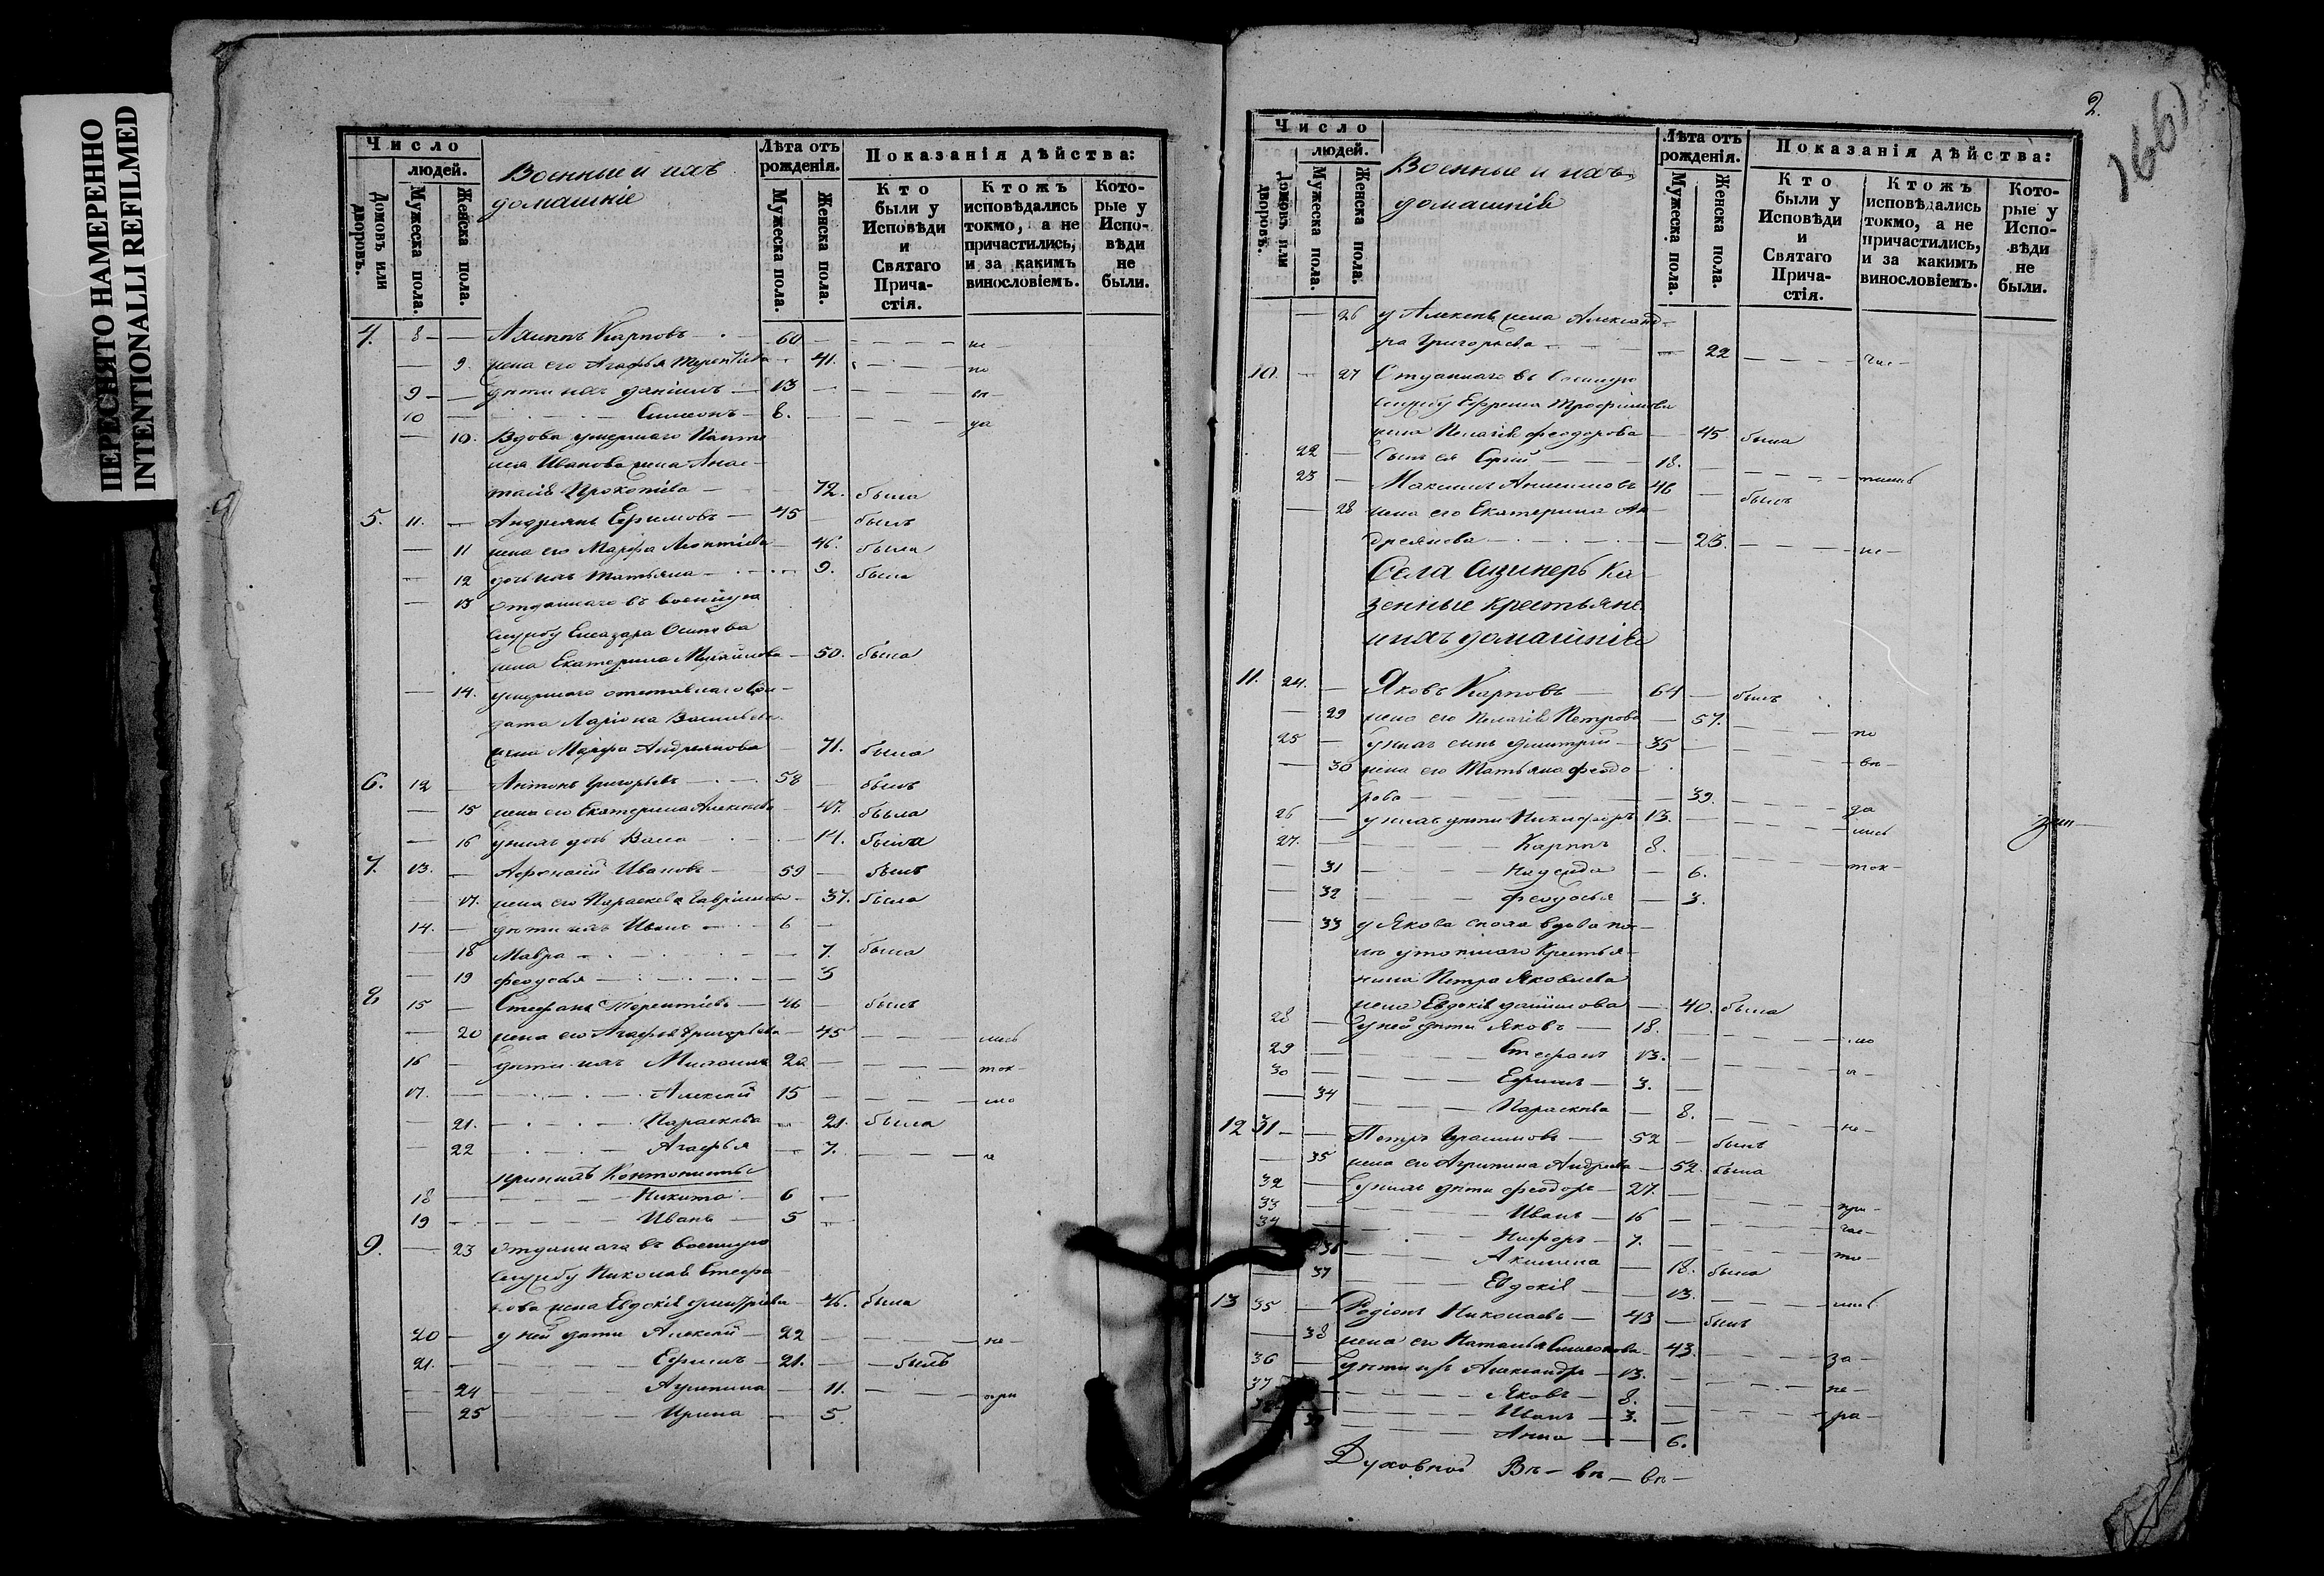 ПЕРЕСНЯТО НАМЕРЕННО
INTENTIONALLI REFILMED
Число
Домовъ или дворовъ.
людей.
Мужеска пола.
Женска пола.
Военные и ихъ
домашніе
Лѣта отъ рожденія.
Мужеска пола.
Женска пола.
Показанія дѣйства:
Кто были у Исповѣди и Святаго Причастія.
Ктожъ исповѣдались токмо, а не причастились, и за какимъ винословіемъ.
Которые у Исповѣди не были.
4. 8 — Карповъ — 60 — не —
— 9. жена его Агафья Терентіева 41. — по
9 — дѣти ихъ Даніилъ — 13 —
10 — Симеонъ — 8. — да
— 10. Вдова умершаго
Иванова жена Анас-
тасія Прокопіева — 72. была
5. 11. — Андреянъ Ефимовъ — 45 — былъ
— 11 жена его Марѳа Леонтіева 46. была
— 12 дочь ихъ Татьяна — 9. была
— 13 отданнаго въ военную
службу Елеазара Осипова
жена Екатерина Михайлова — 50. была
— 14. умершаго отставнаго сол-
дата Ларіона Васильева
жена Марѳа Андреянова — 71. была
6. 12 — Антонъ Григорьевъ — 58 — былъ
— 15 жена его Екатерина Алексѣева 47. была
— 16 у нихъ дочь Васса — 14. была
7. 13. — Аѳанасій Ивановъ — 59 — былъ
— 17. жена его Параскева Гавріилова — 37. была
14. — дѣти ихъ Иванъ — 6 —
— 18 Мавра — 7. была
— 19 Ѳеодосья — 3
8 15 — Стефанъ Терентіевъ — 46 — былъ
— 20 жена его Агафья Григорьева — 45 — лись
16 — дѣти ихъ Михаилъ 20 — ток-
17. — Алексѣй 15 — мо
— 21. — Параскева — 21. была
— 22 — Агафья — 7. —
Кантонисты
18 — Никита — 6 —
19 — Иванъ — 5 —
9. — 23 отданнаго въ военную
службу Николая Стефа
нова жена Евдокія Димитріева — 46. была
20 — у ней дѣти Алексѣй — 22 — не —
21. — Ефимъ — 21. — былъ
— 24 — Агрипина — 11. — при
— 25 — Ирина — 5.
2.
166)
Число
Домовъ или дворовъ.
людей.
Мужеска пола.
Женска пола.
Военные и ихъ
домашнія
Лѣта отъ рожденія.
Мужеска пола.
Женска пола.
Показанія дѣйства:
Кто были у Исповѣди и Святаго Причастія.
Ктожъ исповѣдались токмо, а не причастились, и за какимъ винословіемъ.
Которые у Исповѣди не были.
— 26 у Алексѣя жена Александ-
ра Григорьева — 22 — час-
10. — 27 Отданнаго въ военную
службу Ефрема Трофимова
жена Пелагія Ѳеодорова — 45 была
22 — Сынъ ея Сергій — 18. — тились
23 — Максимъ Анисимовъ 46 — былъ
— 28 жена его Екатерина Ан-
дреянова — 23. — не —
Села Ка-
зенные крестьяне
и ихъ домашнія
11. 24. — Яковъ Карповъ — 64 — былъ
— 29 жена его Пелагія Петрова — 57. — по
25 — у нихъ сынъ Димитрій — 35 —
— 30 жена его Татьяна Ѳеодо — вн —
рова — 39. — да
26 — у нихъ дѣти Никифоръ 13. — лись
27. — Карпъ 8. — ток —
— 31 — Надежда — 6.
— 32 — Ѳеодосья — 3.
— 33 у Якова сноха вдова по-
слѣ утопшаго крестья-
нина Петра Яковлева
жена Евдокія Даніилова — 40. была
28 — у ней дѣти Яковъ — 18. — мо
29 — Стефанъ 13. — и —
30 — Ефимъ — 3. —
— 34 — Параскева — 8. — не —
12 31 — Петръ Герасимовъ — 52 — былъ
— 35 жена его Агрипина Андреева — 52. была
32 — у нихъ дѣти Ѳеодоръ — 27. — при —
33 — Иванъ — 16 — час —
34 — 7. — ти —
— 36 — Акилина — 18. была
— 37 — Евдокія — 13. — лись
13 35 — Родіонъ Николаевъ — 43 — былъ
— 38 жена его Наталья Симеонова — 43. — за —
36 — дѣти ихъ Александръ — 13. — не —
37 — Яковъ — 8. — ра —
38 — Иванъ — 3. —
— 39 — Анна — 6.
Духовной